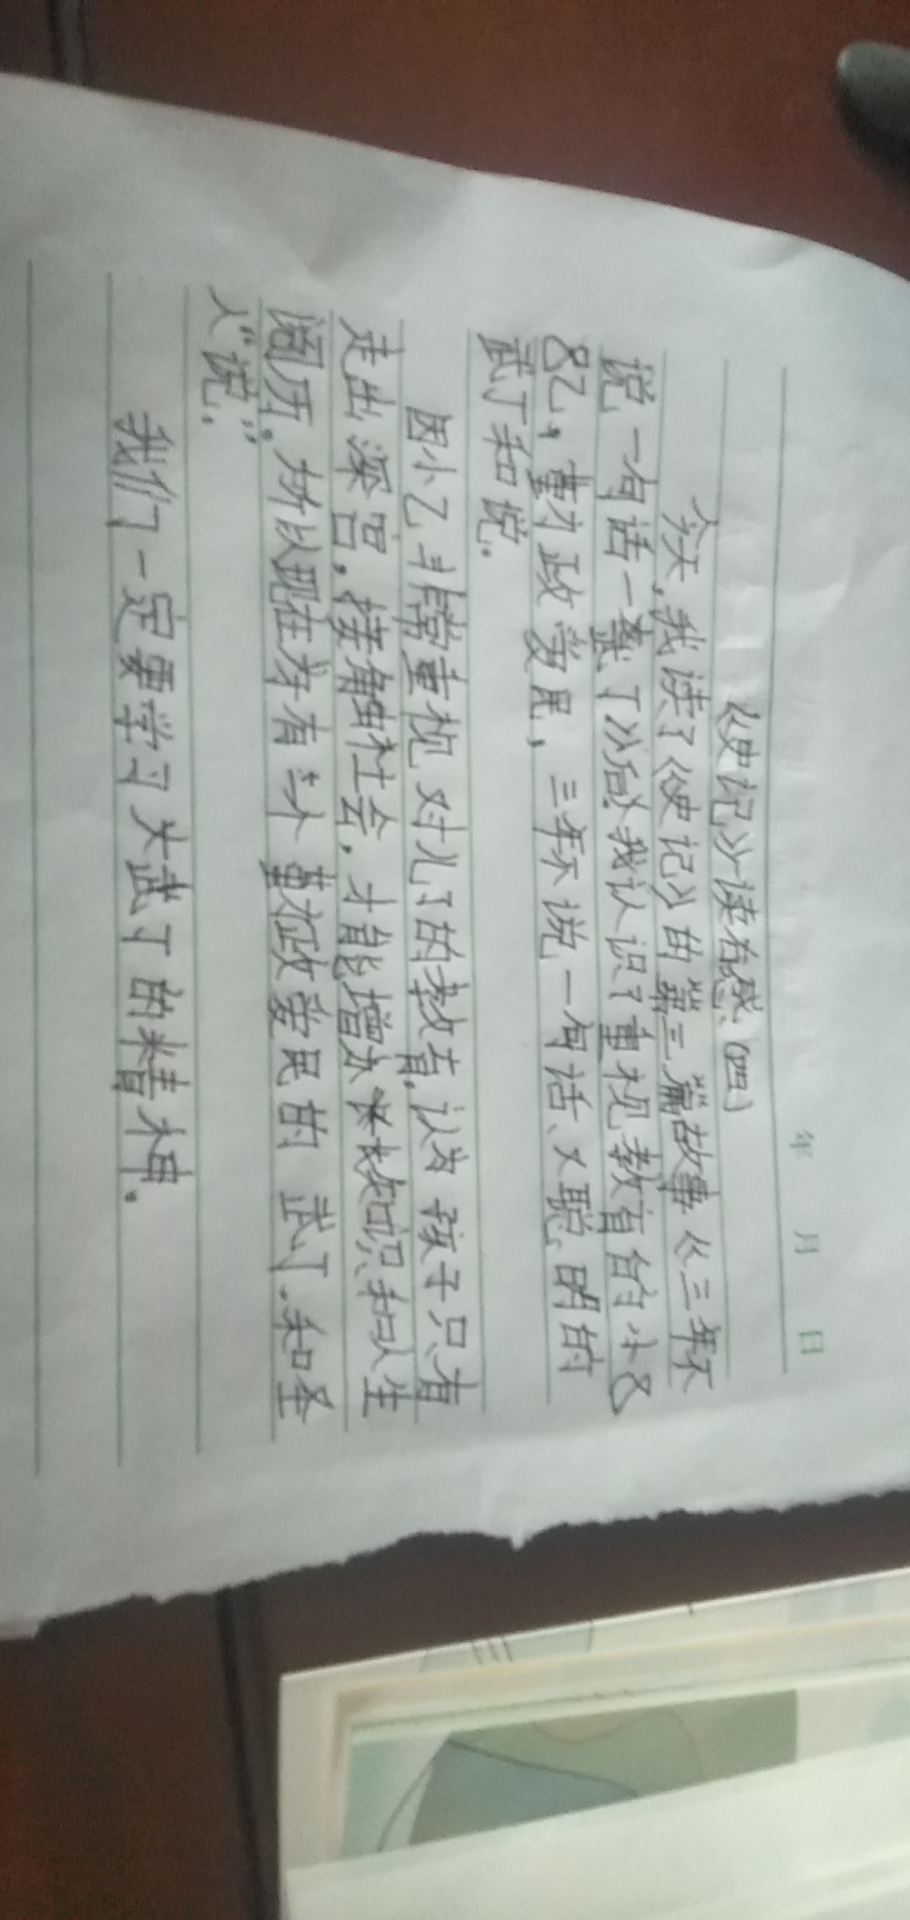 年 月 日
《史记》读后感（四）
今天，我读了《史记》的第三篇故事《三年不
说一句话一鸣 了》后，我认识了重视教育的小
乙，勤政爱民，三年不说一句话、又聪明的
武丁和说。
因小乙非常重视对儿子的教育，认为孩子只有
走出深宫，接触社会，才能增加知识和人生
阅历。所以现在才有 勤政爱民的 武丁和圣
人“说”。
我们一定要学习大武丁的精神。